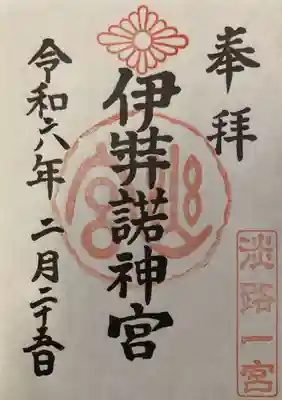 奉拝
伊弉諾神宮
令和六年 二月二十五日
淡路一宮